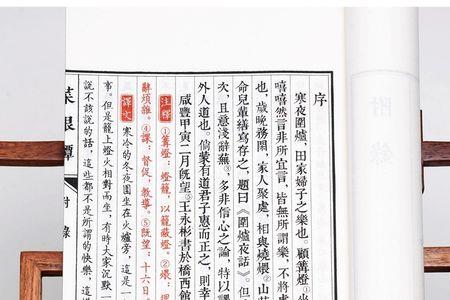 序
寒夜圍爐，田家婦子之樂也。顧篝燈①坐
嘻嘻然言非所宜言，皆無所謂樂，不將慮
也，歲晚務閑，家人聚處，相與燒煨②山芋
命兒輩繕寫存之，題曰《圍爐夜話》。但
次，且意淺辭蕪③，多非信心之論，特以課
外人道也。倘蒙有道君子惠而正之，則幸
咸豐甲寅二月既望⑤王永彬書於橋西館
注釋
①篝燈：燈籠，以籠蔽燈。②煨：
辭煩雜。④課：督促，教導。⑤既望：十六日
譯文
寒冷的冬夜圍坐在火爐旁，這是一
事。但是籠上燈火相對而坐，有時大家沉默一
說不該說的話，這些都不是所謂的快樂，這
菜根譚
附錄
附錄